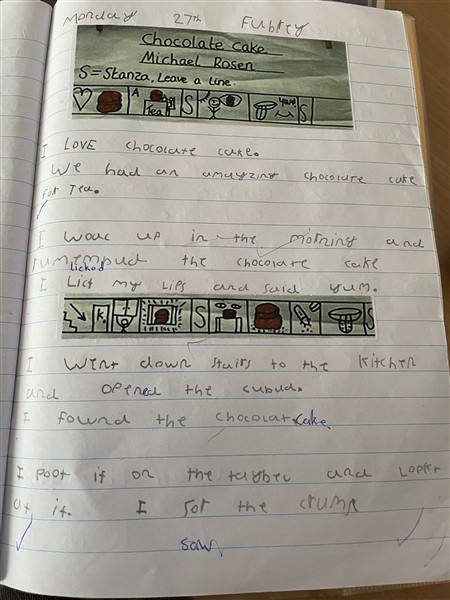 Monday 27th Fubrey
Chocolate Cake
Michael Rosen
S = Stanza, Leave a line.
A Tea S yum S
I LOVE chocolate cake.
We had an amayzing chocolate cake
for Tea.
I woac up in the morning and
rumempud the chocolate cake
licked
I Lict my Lips and said yum.
K S
I went down stairs to the kitchen
and opened the cubud.
I fownd the chocolat cake
I poot it on the taybel and Lookt
at it. I sor the crums
saw